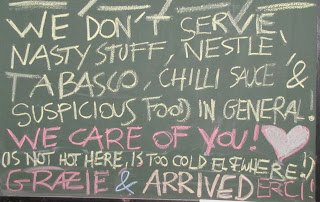 WE DON'T SERVE
NASTY STUFF, NESTLE,
TABASCO, CHILLI SAUCE, &
SUSPICIOUS FOOD IN GENERAL!
WE CARE OF YOU!
(IS NOT HOT HERE, IS TOO COLD ELSEWHERE!)
GRAZIE & ARRIVEDERCI!